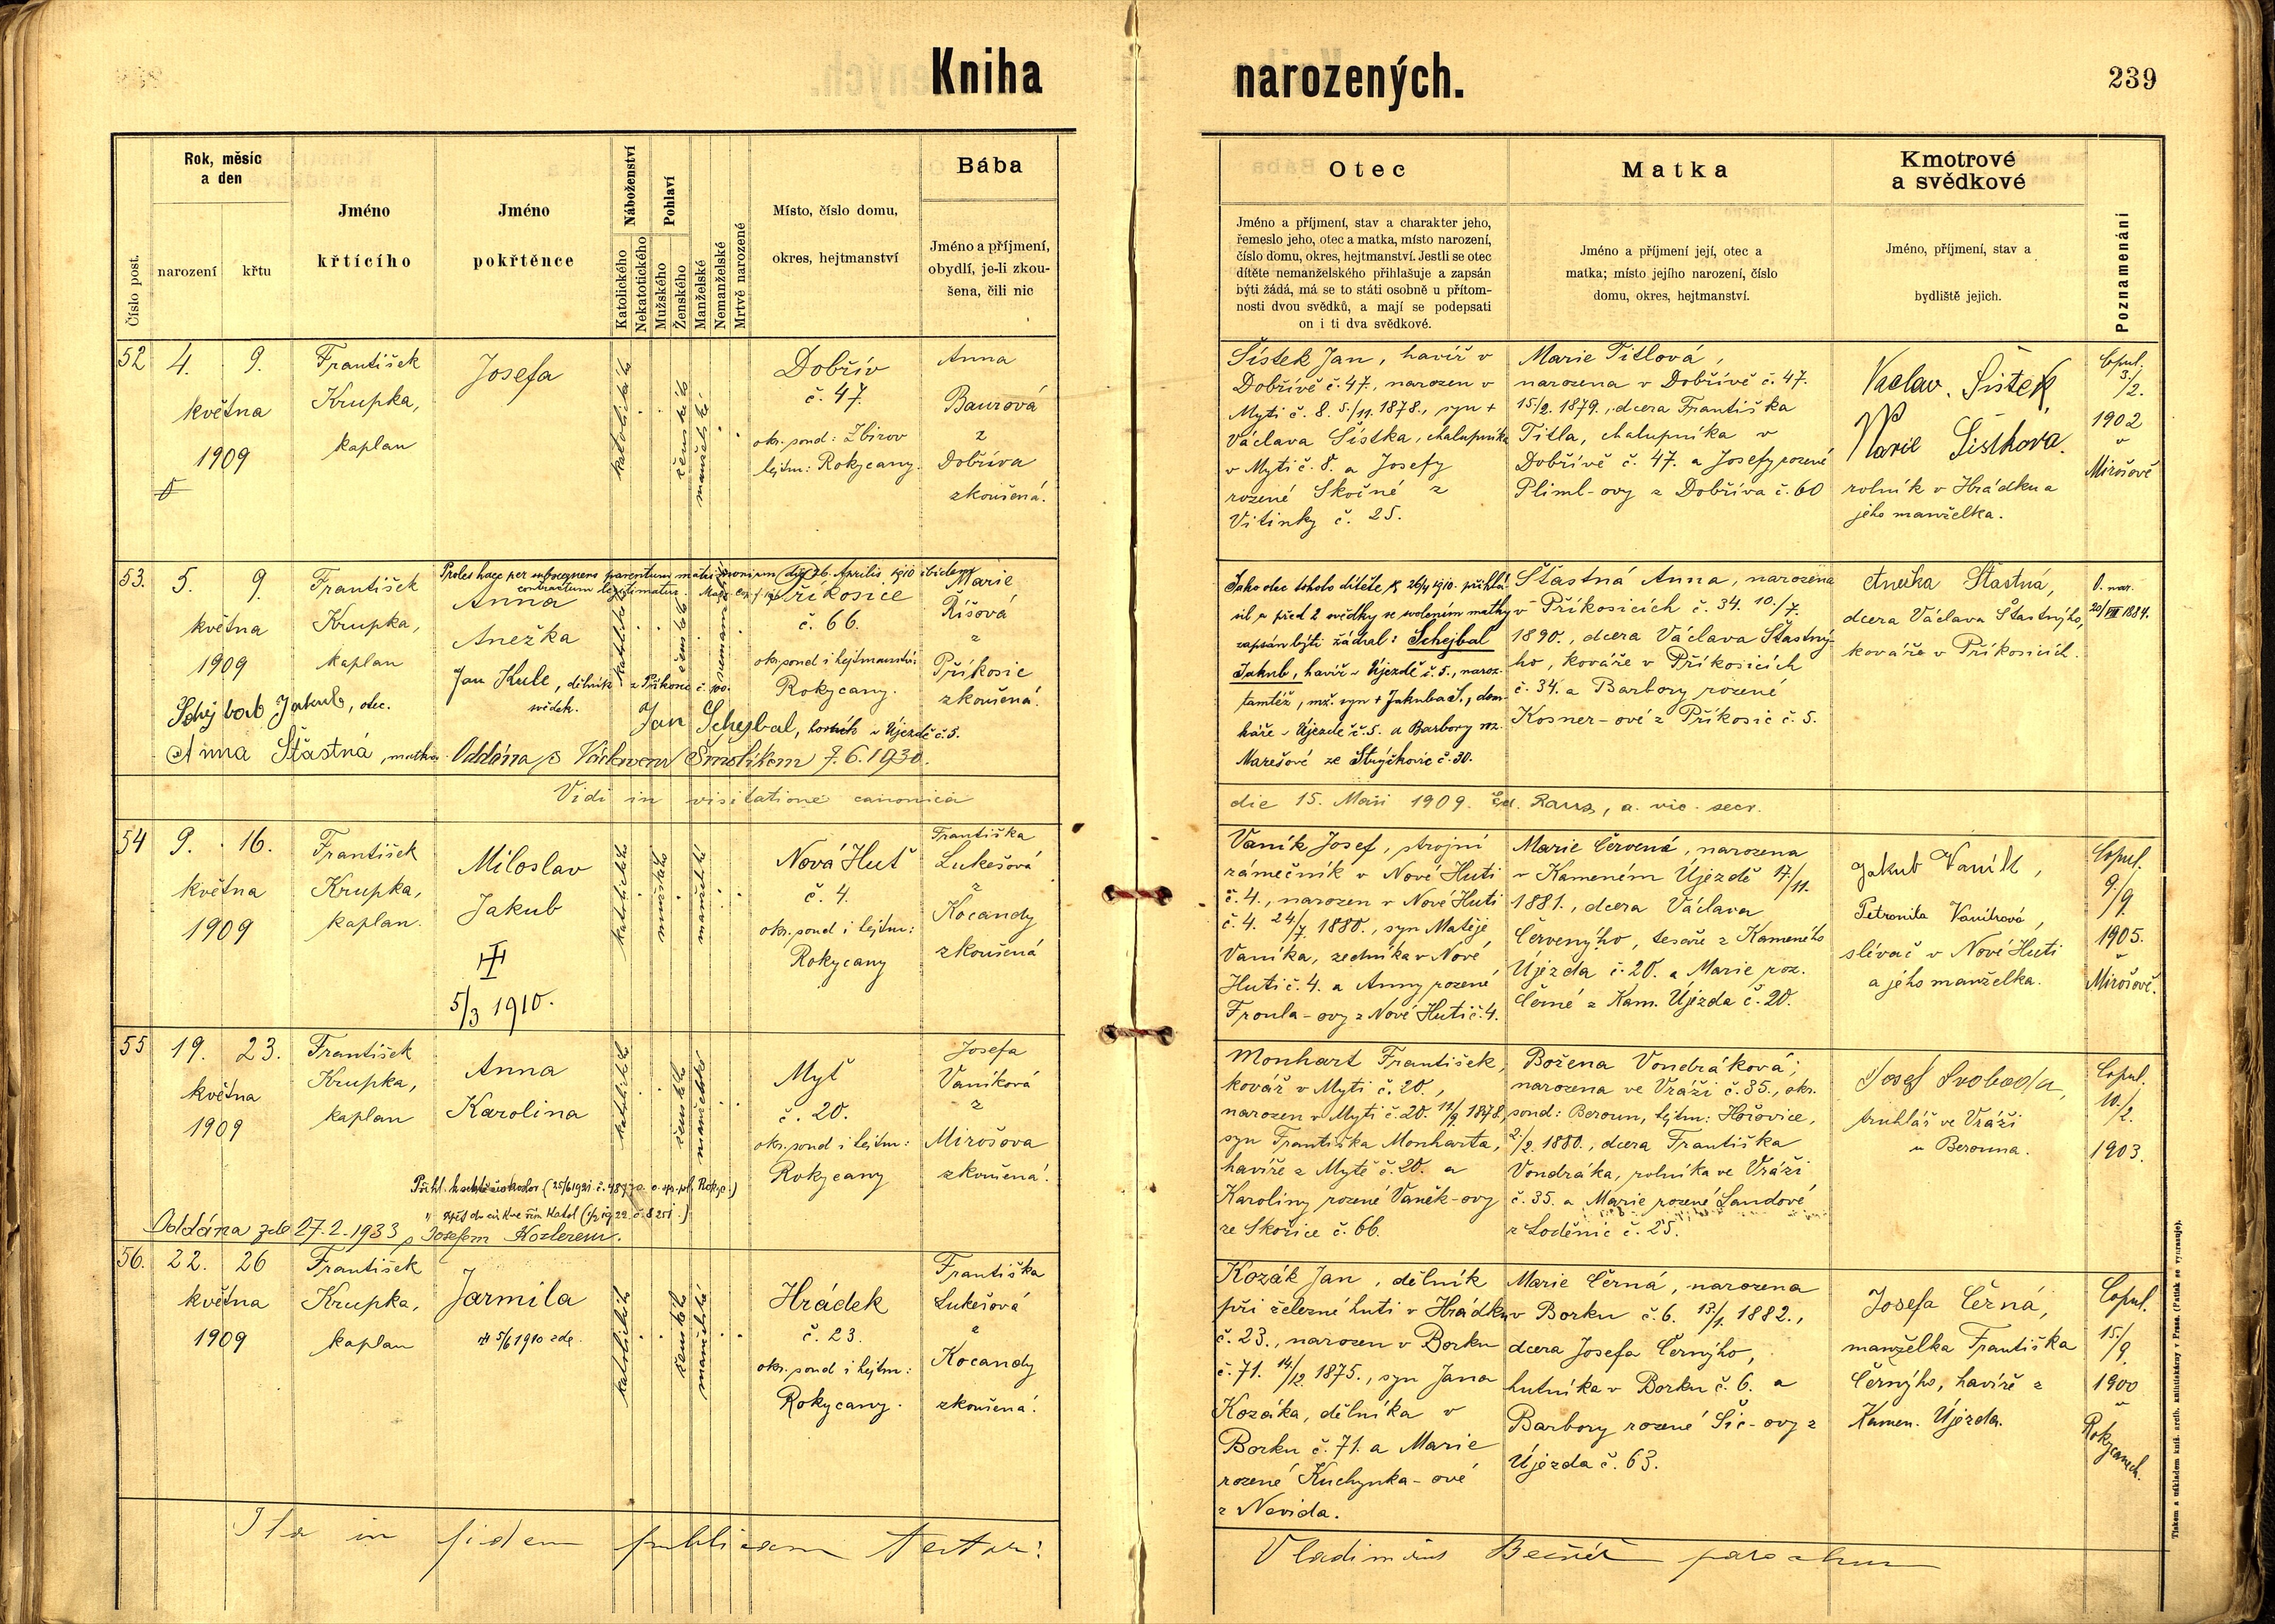 Kniha narozených.
239
Číslo post.
Rok, měsíc a den
narození
křtu
Jméno křtícího
Jméno pokřtěnce
Náboženství
Katolického
Nekatolického
Pohlaví
Mužského
Ženského
Manželské
Nemanželské
Mrtvě narozené
Místo, číslo domu,
okres, hejtmanství
Bába
Jméno a příjmení,
obydlí, je-li zkou-
šena, čili nic
Otec
Jméno a příjmení, stav a charakter jeho,
řemeslo jeho, otec a matka, místo narození,
číslo domu, okres, hejtmanství. Jestli se otec
dítěte nemanželského přihlašuje a zapsán
býti žádá, má se to státi osobně u přítom-
nosti dvou svědků, a mají se podepsati
on i ti dva svědkové.
Matka
Jméno a příjmení její, otec a
matka; místo jejího narození, číslo
domu, okres, hejtmanství.
Kmotrové
a svědkové
Jméno, příjmení, stav a
bydliště jejich.
Poznamenání
52
4. 9.
května
1909
František
Krupka,
kaplan
Josefa
katolického
ženského
manželské
Dobřív
č. 47.
okr. soud: Zbirov
hejtm: Rokycany.
Anna
Baurová
z
Dobříva
zkoušená.
Šístek Jan, havíř v
Dobřívě č. 47., narozen v
Myti č. 8. 5./11. 1878., syn +
Václava Šístka, chalupníka
v Myti č. 8. a Josefy
rozené Skočné z
Vitinky č. 25.
Marie Titlová,
narozena v Dobřívě č. 47.
15/2. 1879., dcera Františka
Titla, chalupníka v
Dobřívě č. 47. a Josefy rozené
Pliml-ovy z Dobříva č. 60
Vaclav. Šístek,
Marie Šistkova.
rolník v Hrádku a
jeho manželka.
Copul.
3./2.
1902
v
Mirošově
53.
5. 9.
května
1909
František
Krupka,
kaplan
Proles haec per subsequens parentum matrimonium die 26. Aprilis 1910 ibidem
contractum legitimatur.
Anna
Anežka
katolického
ženského
nemanželské
Příkosice
č. 66.
okr. soud i hejtmanství:
Rokycany.
Marie
Říšová
z
Příkosic
zkoušená.
Jan Kule, dělník z Příkosic č. 100.
svědek.
Schejbal Jakub, otec.
Jan Schejbal, horník v Újezdě č. 5.
Anna Šťastná, matka
Oddána s Václavem Smolíkem 7.6.1930.
Jako otec tohoto dítěte se 26/4 1910. přihlá-
sil a před 2 svědky se svolením matky
zapsán býti žádal: Schejbal
Jakub, havíř v Újezdě č. 5., naroz.
tamtéž, mž. syn + Jakuba S., dom-
káře v Újezdě č. 5. a Barbory roz.
Marešové ze Štítkovic č. 30.
Šťastná Anna, narozena
v Příkosicích č. 34. 10./7.
1890., dcera Václava Šťastný-
ho, kováře v Příkosicích
č. 34. a Barbory rozené
Kosner-ové z Příkosic č. 5.
Anežka Šťastná,
dcera Václava Šťastnýho,
kováře v Příkosicích.
O. nar.
20/VII 1884.
Vidi in visitatione canonica
die 15. Maii 1909. a. vic. secr.
54
9. 16.
května
1909
František
Krupka,
kaplan.
Miloslav
Jakub
5/3 1910.
katolického
mužského
manželské
Nová Huť
č. 4.
okr. soud i hejtm:
Rokycany
Františka
Lukešová
z
Kocandy
zkoušená
Vaník Josef, strojní
zámečník v Nové Huti
č. 4., narozen v Nové Huti
č. 4. 24/7. 1880., syn Matěje
Vaníka, zedníka v Nové
Huti č. 4. a Anny rozené
Froula-ovy z Nové Huti č. 4.
Marie Červená, narozena
v Kameném Újezdě 17/11.
1881., dcera Václava
Červenýho, tesaře z Kameného
Újezda č. 20. a Marie roz.
Černé z Kam. Újezda č. 20.
Jakub Vaník,
Petronila Vaníková,
slévač v Nové Huti
a jeho manželka.
Copul.
9./9.
1905.
v
Mirošově.
55
19. 23.
května
1909
František
Krupka,
kaplan
Anna
Karolina
katolického
ženského
manželské
Myť
č. 20.
okr. soud i hejtm:
Rokycany
Josefa
Vaníková
z
Mirošova
zkoušená.
Oddána zde 27.2.1933 s Josefem Kozlerem.
Monhart František,
kovář v Myti č. 20.,
narozen v Myti č. 20. 11/9 1878,
syn Františka Monharta,
havíře z Mytě č. 20. a
Karoliny rozené Vaněk-ovy
ze Skořice č. 66.
Božena Vondráková,
narozena ve Vráži č. 35., okr.
soud: Beroun, hejtm: Hořovice,
2./2. 1880., dcera Františka
Vondráka, rolníka ve Vráži
č. 35. a Marie rozené Landové
z Loděnic č. 25.
Josef Svoboda,
truhlář ve Vráži
u Berouna.
Copul.
10./2.
1903.
56.
22. 26
května
1909
František
Krupka,
kaplan
Jarmila
5/6 1910 zde.
katolického
ženského
manželské
Hrádek
č. 23.
okr. soud i hejtm:
Rokycany.
Františka
Lukešová
z
Kocandy
zkoušená.
Kozák Jan, dělník
při železné huti v Hrádku
č. 23., narozen v Borku
č. 71. 14./12. 1875., syn Jana
Kozáka, dělníka v
Borku č. 71. a Marie
rozené Kuchynka-ové
z Nevida.
Marie Černá, narozena
v Borku č. 6. 13/1. 1882.,
dcera Josefa Černýho,
hutníka v Borku č. 6. a
Barbory rozené Šic-ovy z
Újezda č. 63.
Josefa Černá,
manželka Františka
Černýho, havíře z
Kamen. Újezda.
Copul.
15./9.
1900
v
Rokycanech.
Ita in fidem publicam testor:
Vladimirus parochus